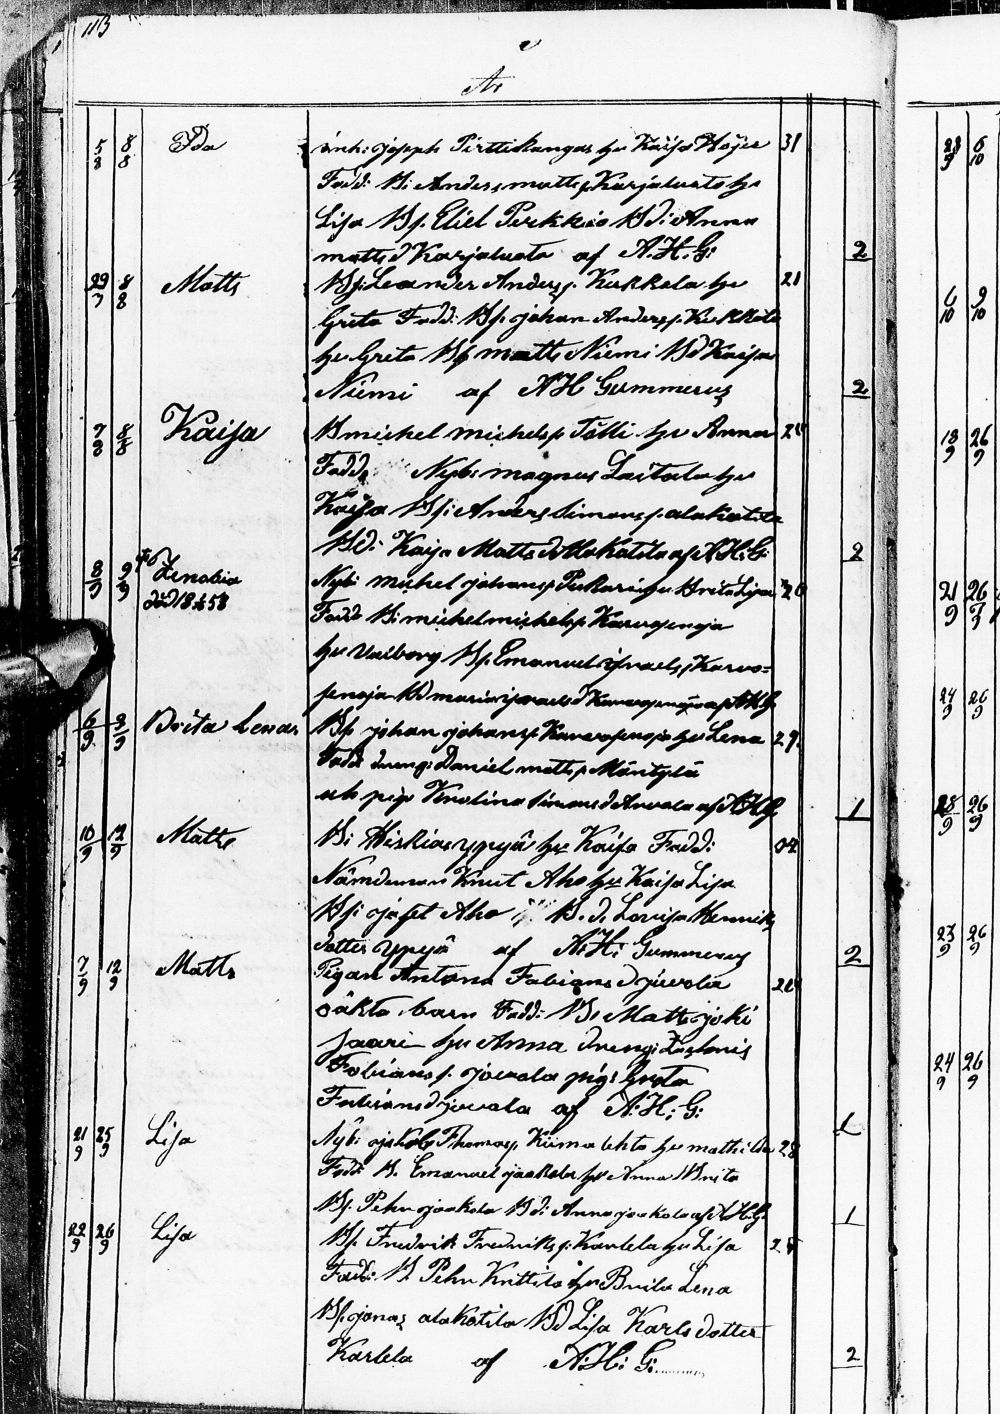 113
År
5/8 8/8 Ida inh: Joseph Pirttikangas hu Kaisa Höjer 31
Fadd: B: Anders matts s. Karjaluoto hu
Lisa Bs. Eliel Perkkio Bd: Anna
matts d Karjaluoto af A.H.G: 2
29/7 8/8 Matts Bs. Leander Anders s. Kukkola hu 21
Greta Fadd: Bs. johan Anders s. Kukkola
hu Greta Bs matts Niemi Bd Kaisa
Niemi af AH Gummerus 2
7/8 8/8 Kaisa B michel michels s Tölli hu Anna
Fadd: Nyb: magnus Laitala hu
Kaisa Bs: Anders Simons s. alakotila
Bd: Kaisa Matts d Alakotila af A.H.G: 2
8/9 9/9 Zenobia Nyb: michel johans s Pekkari hu Brita Lisa 26
död 18 58 Fadd B: michel michels s Karvosenoja
hu Valborg Bs. Emanuel israels s. Karvo=
senoja Bd maria israels d Karvosenoja af AHG
6/9 9/9 Brita Lena Bs johan johans s Karvosenoja hu Lena 29.
Fadd dreng: Daniel matts s Mäntylä
och pig: Karolina Simons d Arvola af AHG. 1
10/9 12/9 Matts B: Hiskias yppyä hu Kaisa Fadd: 34
Nämdeman Knut Aho hu Kaisa Lisa
Bs: josef Aho B. d. Lovisa Henriks
dotter yppyä af A:H: Gummerus 2
7/9 12/9 Matts Pigan Antona Fabians d juvola
oäkta barn Fadd: B: Matts joki
saari hu Anna dreng:
Fabians s. juvola pig: Greta
Fabians d juvola af A:H:G: 1
21/9 25/9 Lisa Nyb: jakob Thomas s. Kiimalehto hu mathilda 28
Fadd: B. Emanuel jaakola hu Anna Brita
Bs. Pehr jaakola Bd: Anna jaakola af A.H.G. 1
22/9 26/9 Lisa Bs. Fredrik Fredriks s: Karlela hu Lisa
Fadd: B. Pehr Knittila hu Brita Lena
Bs. jonas alakotila Bd Lisa Karls dotter
Karlela af A:H: G: 2